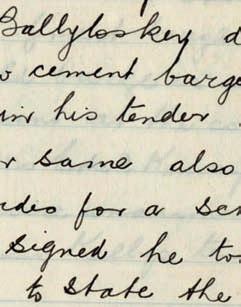 Ballyloskey d
cement barge
in his tender
same also
ides for a se
signed he to
to state the